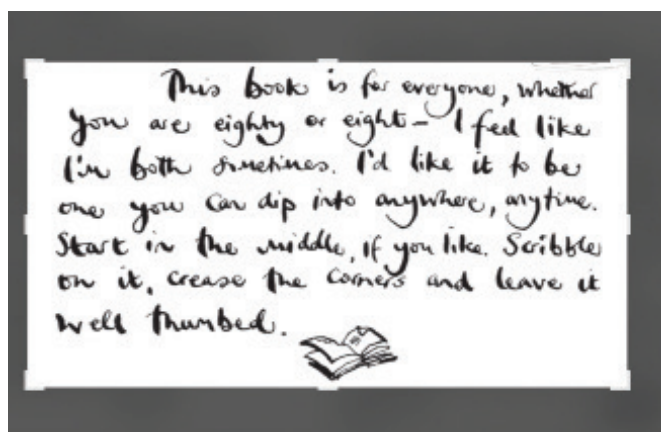 This book is for everyone, whether
you are eighty or eight – I feel like
I'm both sometimes. I'd like it to be
one you can dip into anywhere, anytime.
Start in the middle, if you like. Scribble
on it, crease the corners and leave it
well thumbed.